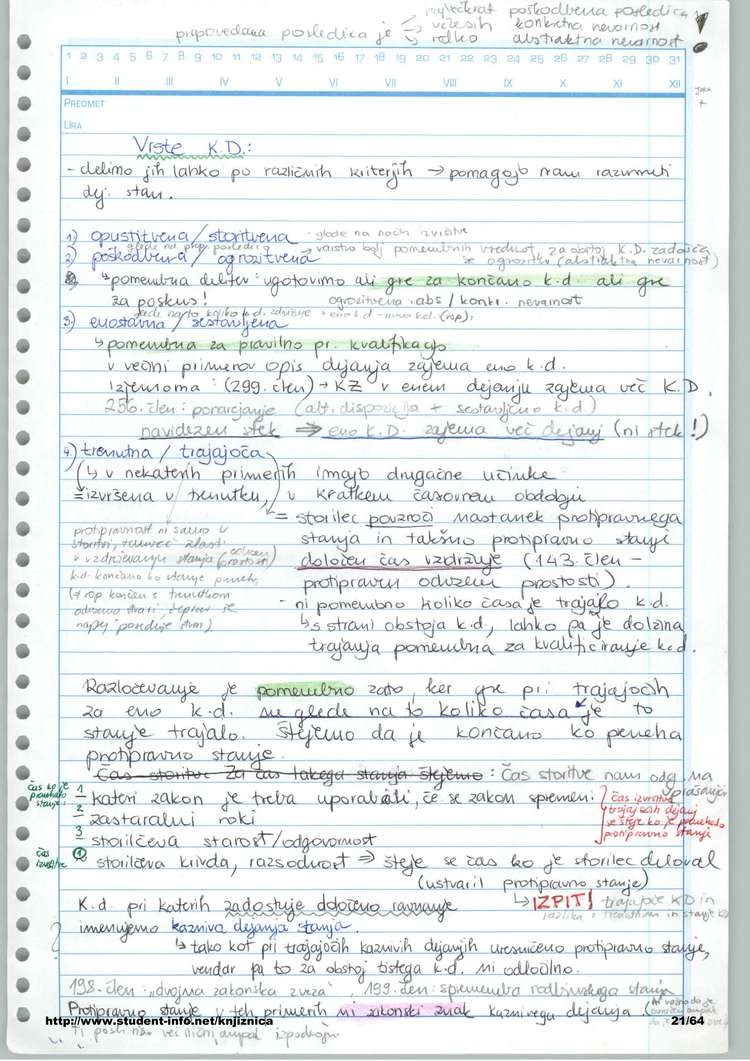 največkrat poškodbena posledica
včasih konkretna nevarnost
prepovedana posledica je redko abstraktna nevarnost
1 2 3 4 5 6 7 8 9 10 11 12 13 14 15 16 17 18 19 20 21 22 23 24 25 26 27 28 29 30 31
I II III IV V VI VII VIII IX X XI XII
PREDMET
URA
Vrste K.D.:
- delimo jih lahko po različnih kriterjih → pomagajo nam razumeti
dej. stan.
1) opustitvena / storitvena - glede na način izvršitve
glede na prep. posledico
2) poškodbena / ogrozitvena → varstvo bolj pomembnih vrednot, za obstoj K.D. zadošča
že ogrozitev (abstraktna nevarnost)
↳ pomembna delitev: ugotovimo ali gre za končano k.d. ali gre
za poskus! ogrozitvena .abs / konkr. nevarnost
glede na to koliko k.d. združuje
3) enostavna / sestavljena
↳ pomembna za pravilno pr. kvalifikacijo
v večini primerov opis dejanja zajema eno k.d.
Izjemoma: (299. člen) → KZ v enem dejanju zajema več K.D.
256. člen: ponarejanje (alt. dispozicija + sestavljeno k.d.)
navidezen stek ⇒ eno K.D. zajema več dejanj (ni stek!)
4) trenutna / trajajoča
(↳ v nekaterih primerih imajo drugačne učinke
= izvršena v trenutku, v kratkem časovnem obdobju
= storilec povzroči nastanek protipravnega
stanja in takšno protipravno stanje
določen čas vzdržuje (143. člen -
protipraven odvzem prostosti).
- ni pomembno koliko časa je trajalo k.d.
↳ s strani obstoja k.d., lahko pa je dolžina
trajanja pomembna za kvalificiranje k.d.
protipravnost ni samo v
storitvi, temveč zlasti
v vzdrževanju stanja (odvzem prostosti)
k.d. končano ko stanje preneha
(≠ rop končan s trenutkom
odvzema stvari čeprav se
naprej poseduje stvar).
Razločevanje je pomembno zato, ker gre pri trajajočih
za eno k.d. ne glede na to koliko časa je to
stanje trajalo. Štejemo da je končano ko preneha
protipravno stanje.
Čas storitve Za čas takega stanja štejemo: Čas storitve nam odg. na
vprašanja:
čas ko je
prenehalo
stanje:
1 - kateri zakon je treba uporabiti, če se zakon spremeni
2 - zastaralni roki
3 storilčeva starost/odgovornost
čas izvršitve
trajajočih dejanj
se šteje ko je prenehalo
protipravno stanje
čas
izvršitve
① storilčeva krivda, razsodnost ⇒ šteje se čas ko je storilec deloval
(ustvaril protipravno stanje)
↳ IZPIT! trajajoče KD in
razlika s trenutnim in stanje KD
K.d. pri katerih zadostuje določeno ravnanje
imenujemo kazniva dejanja stanja.
↳ tako kot pri trajajočih kaznivih dejanjih uresničeno protipravno stanje,
vendar pa to za obstoj tistega k.d. ni odločilno.
198. člen: "dvojna zakonska zveza" 199. člen: sprememba rodbinskega stanja
Protipravno stanje v teh primerih ni zakonski znak kaznivega dejanja.
http://www.student-info.net/knjiznica
21/64